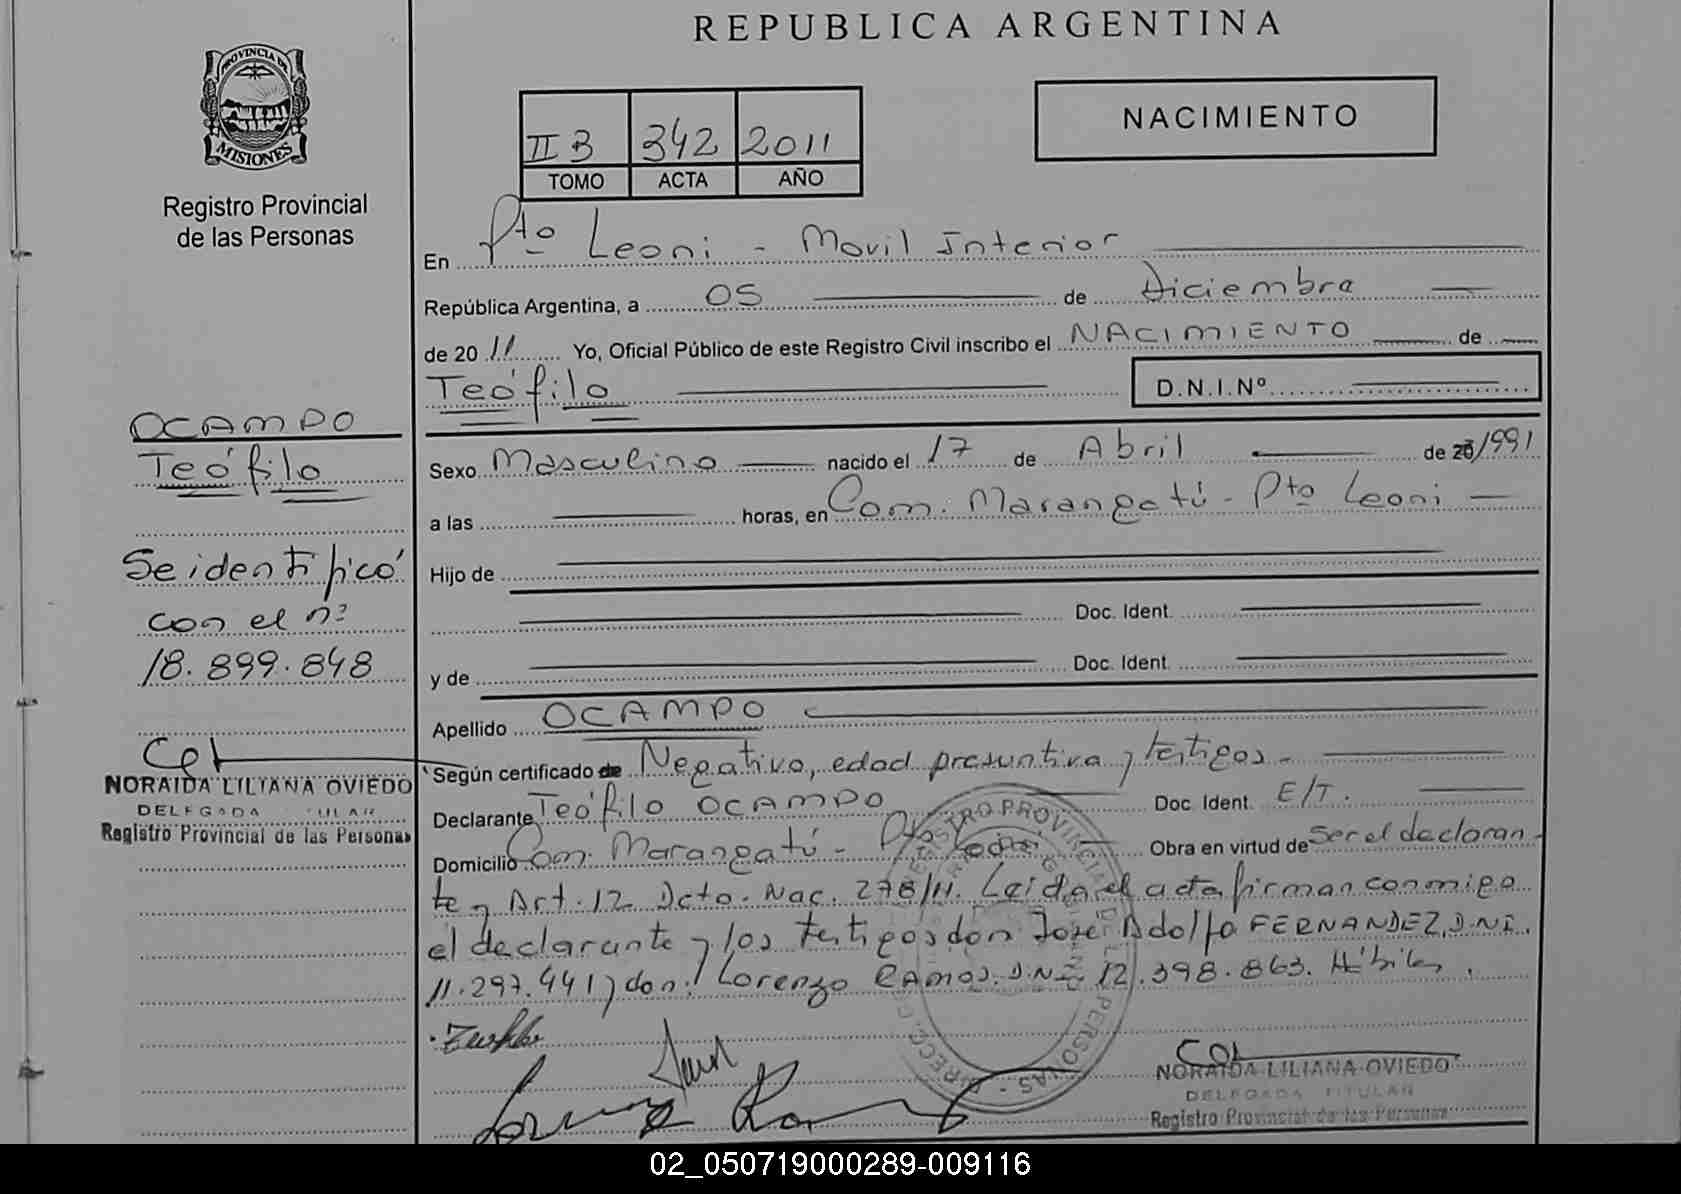 REPUBLICA ARGENTINA
PROVINCIA DE
MISIONES
Registro Provincial
de las Personas
II B 342 2011
TOMO ACTA AÑO
NACIMIENTO
En Pto Leoni - Movil Interior
República Argentina, a 05 de Diciembre
de 20 11 Yo, Oficial Público de este Registro Civil inscribo el NACIMIENTO de
Teófilo D.N.I. Nº
OCAMPO
Teófilo
Se identificó
con el nº
18.899.848
NORAIDA LILIANA OVIEDO
DELEGADA TITULAR
Registro Provincial de las Personas
Sexo Masculino nacido el 17 de Abril de 1991
a las horas, en Com. Marangatú - Pto Leoni
Hijo de
Doc. Ident.
y de Doc. Ident.
Apellido OCAMPO
Según certificado de Negativo, edad presuntiva y testigos.
Declarante Teófilo OCAMPO Doc. Ident. E/T.
Domicilio Com. Marangatú - Pto Leoni Obra en virtud de Ser el declaran-
te y Art. 12 Dcto. Nac. 278/11. Leída el acta firman conmigo
el declarante y los testigos don José Adolfo FERNANDEZ, D.N.I.
11.297.441 y don: Lorenzo RAMOS. D.N.I. 12.398.863. Hábiles.
NORAIDA LILIANA OVIEDO
DELEGADA TITULAR
Registro Provincial de las Personas
02_050719000289-009116